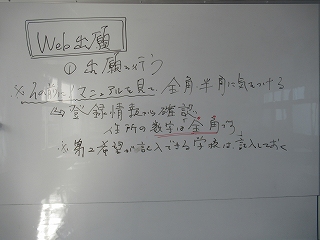 Web出願
① 出願を行う
※ マニュアルを見て、全角半角に気をつける
⇨ 登録情報から確認
住所の数字は全角です
※ 第2希望が記入できる学校は、記入しておく